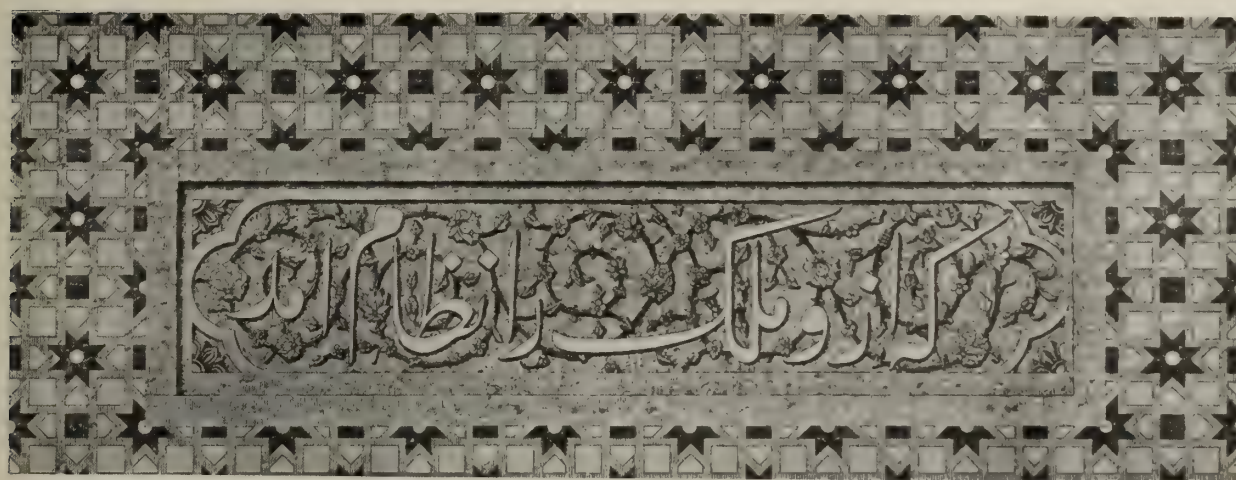 کزو ملک را نظام آمد